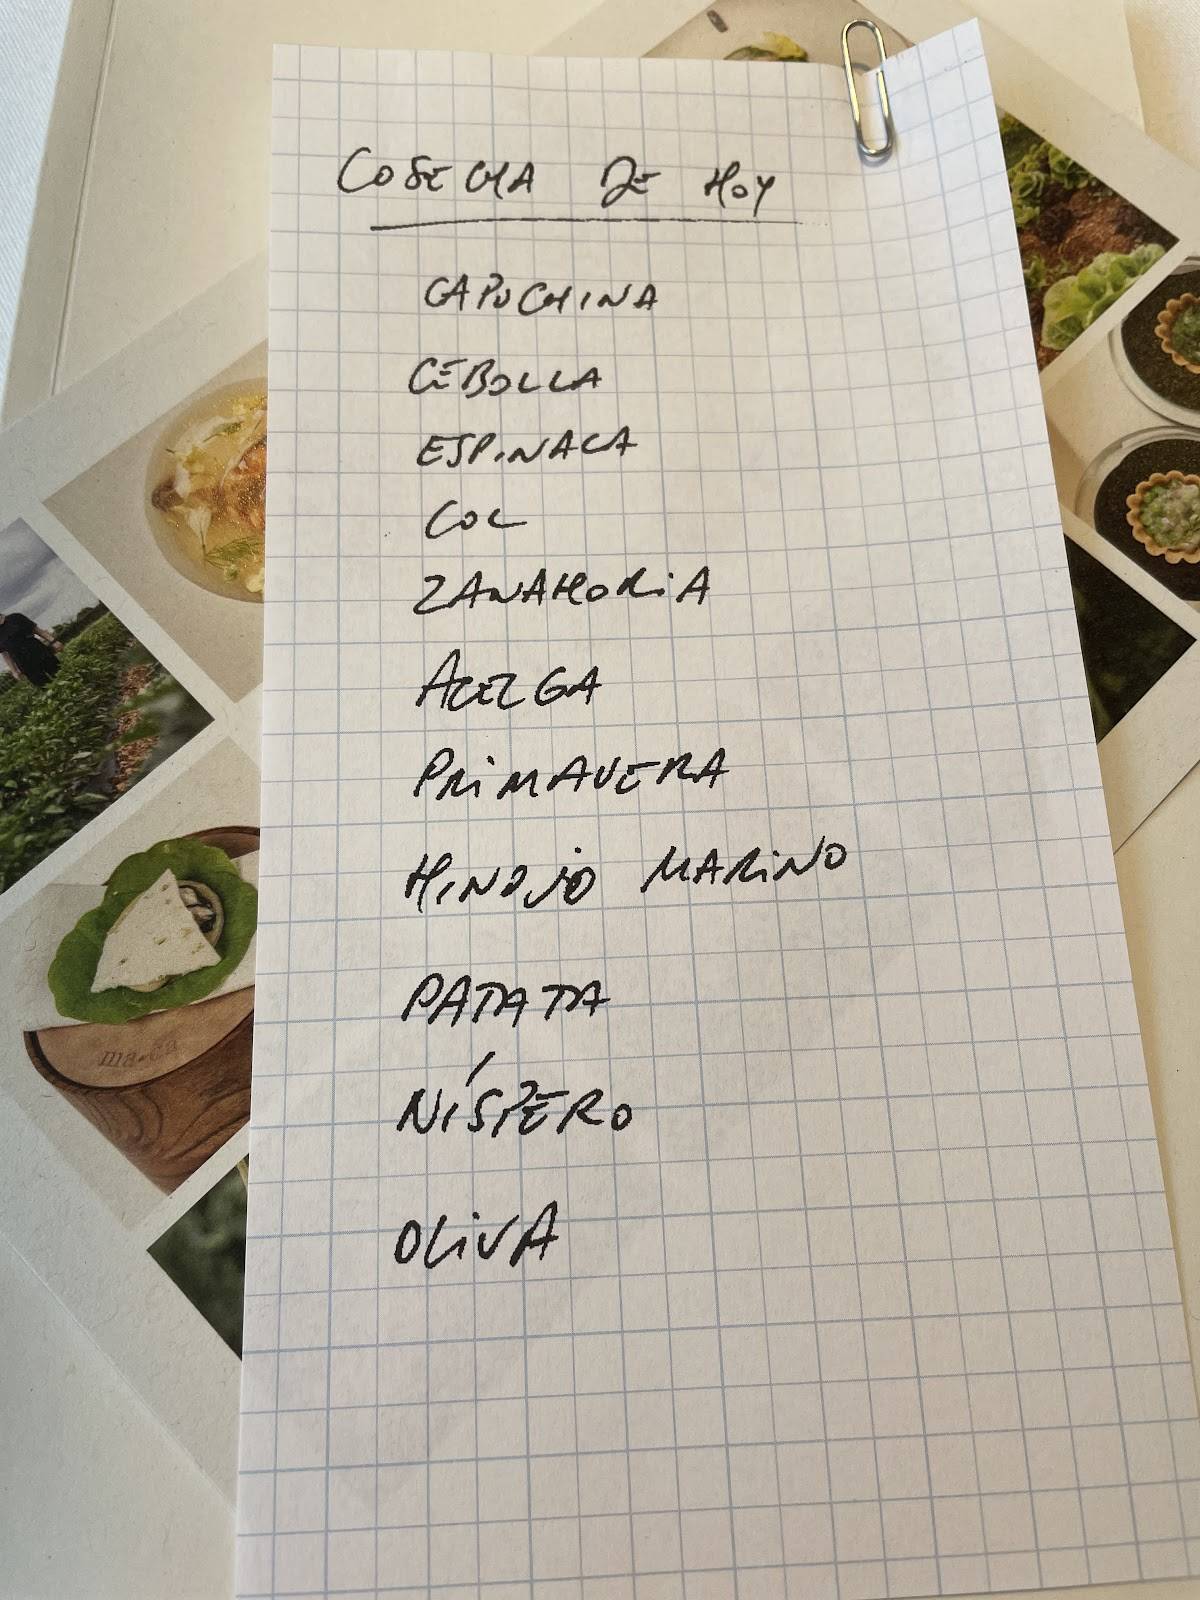 COSECHA DE HOY
CAPUCHINA
CEBOLLA
ESPINACA
COL
ZANAHORiA
ACELGA
PRiMAVERA
HINOJO MARiNO
PATATA
NÍSPERO
OLiVA